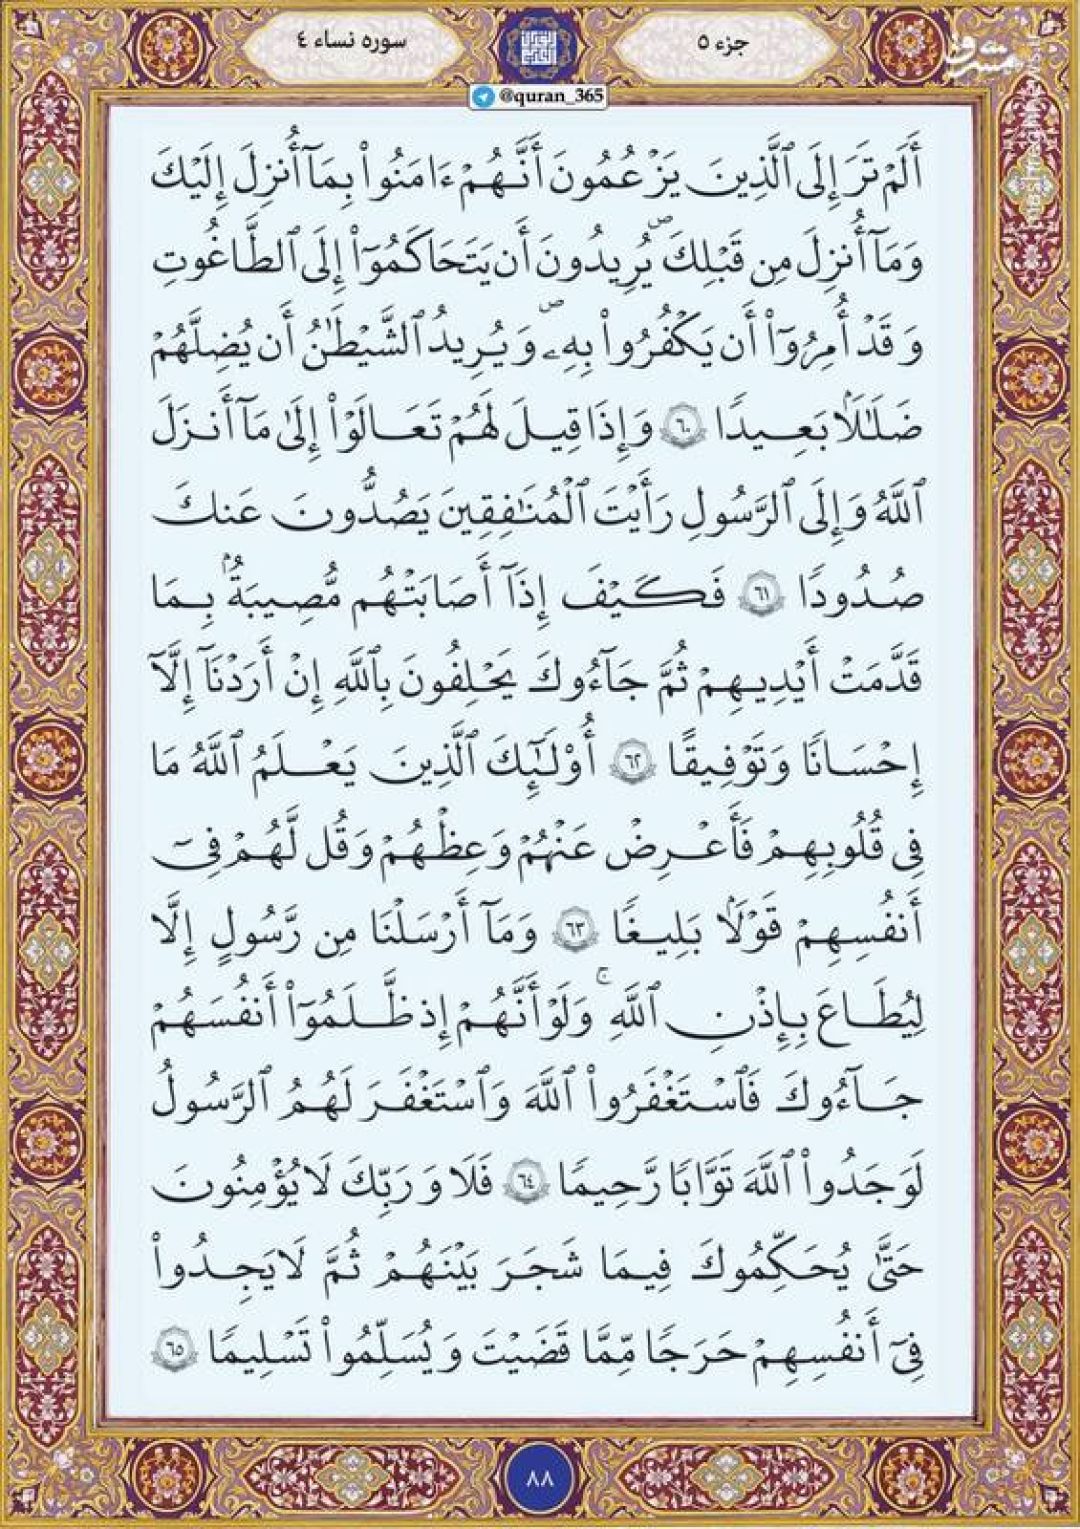 جزء ٥
سوره نساء ٤
@quran_365
مشرق
mashreghnews
أَلَمْ تَرَ إِلَى ٱلَّذِينَ يَزْعُمُونَ أَنَّهُمْ ءَامَنُوا۟ بِمَآ أُنزِلَ إِلَيْكَ
وَمَآ أُنزِلَ مِن قَبْلِكَ ۖ يُرِيدُونَ أَن يَتَحَاكَمُوٓا۟ إِلَى ٱلطَّاغُوتِ
وَقَدْ أُمِرُوٓا۟ أَن يَكْفُرُوا۟ بِهِۦ ۖ وَيُرِيدُ ٱلشَّيْطَٰنُ أَن يُضِلَّهُمْ
ضَلَٰلًۢا بَعِيدًا ٦٠ وَإِذَا قِيلَ لَهُمْ تَعَالَوْا۟ إِلَىٰ مَآ أَنزَلَ
ٱللَّهُ وَإِلَى ٱلرَّسُولِ رَأَيْتَ ٱلْمُنَٰفِقِينَ يَصُدُّونَ عَنكَ
صُدُودًا ٦١ فَكَيْفَ إِذَآ أَصَابَتْهُم مُّصِيبَةٌۢ بِمَا
قَدَّمَتْ أَيْدِيهِمْ ثُمَّ جَآءُوكَ يَحْلِفُونَ بِٱللَّهِ إِنْ أَرَدْنَآ إِلَّآ
إِحْسَانًا وَتَوْفِيقًا ٦٢ أُو۟لَٰٓئِكَ ٱلَّذِينَ يَعْلَمُ ٱللَّهُ مَا
فِى قُلُوبِهِمْ فَأَعْرِضْ عَنْهُمْ وَعِظْهُمْ وَقُل لَّهُمْ فِىٓ
أَنفُسِهِمْ قَوْلًۢا بَلِيغًا ٦٣ وَمَآ أَرْسَلْنَا مِن رَّسُولٍ إِلَّا
لِيُطَاعَ بِإِذْنِ ٱللَّهِ ۚ وَلَوْ أَنَّهُمْ إِذ ظَّلَمُوٓا۟ أَنفُسَهُمْ
جَآءُوكَ فَٱسْتَغْفَرُوا۟ ٱللَّهَ وَٱسْتَغْفَرَ لَهُمُ ٱلرَّسُولُ
لَوَجَدُوا۟ ٱللَّهَ تَوَّابًا رَّحِيمًا ٦٤ فَلَا وَرَبِّكَ لَا يُؤْمِنُونَ
حَتَّىٰ يُحَكِّمُوكَ فِيمَا شَجَرَ بَيْنَهُمْ ثُمَّ لَا يَجِدُوا۟
فِىٓ أَنفُسِهِمْ حَرَجًا مِّمَّا قَضَيْتَ وَيُسَلِّمُوا۟ تَسْلِيمًا ٦٥
٨٨